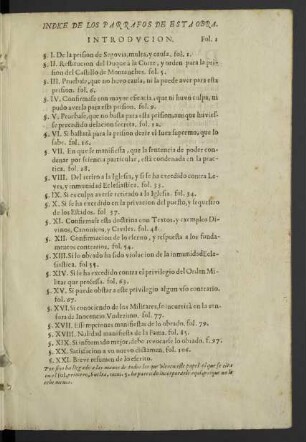 INDICE DE LOS PARRAFOS DE ESTA OBRA.
INTRODVCION. Fol. 1
§. I. De la prision de Segovia, modo, y causa, fol. 2.
§. II. Restitucion del Duque a la Corte, y orden para la pri-
sion del Castillo de Montanchez. fol. 5.
§. III. Pruebase, que no huvo causa, ni la puede aver para esta
prision. fol. 6.
§. IV. Confirmase con mayor eficacia, que ni huvo culpa, ni
pudo averla para esta prision. fol. 9.
§. V. Pruebase, que no basta para esta prision, aunque huvies-
se precedido delacion secreta. fol. 12.
§. VI. Si bastarà para la prision dezir el Iuez supremo, que lo
sabe. fol. 16.
§. VII. En que se manifiesta, que la sentencia de poder conde-
nar por sciencia particular, està condenada en la prac-
tica. fol. 28.
§. VIII. Del retiro a la Iglesia, y si se ha excedido contra
inmunidad Eclesiastica. fol. 33.
§. IX. Si es culpa averse retirado a la Iglesia. fol. 34.
§. X. Si se ha excedido en la privacion del puesto, y sequestro
de los Estados. fol. 37.
§. XI. Confirmase esta doctrina con Textos, y exemplos Di-
vinos, Canonicos, y Civiles. fol. 48.
§. XII. Confirmacion de lo cierto, y respuesta a los funda-
mentos contrarios. fol. 54.
§. XIII. Si lo obrado ha sido violacion de la inmunidad Ecle-
siastica. fol. 58.
§. XIV. Si se ha excedido contra el privilegio del Orden Mili-
tar que professa. fol. 63.
§. XV. Si puede obstar a este privilegio algun vso contrario.
fol. 67.
§. XVI. Si conociendo de los Militares, se incurrirà en la cen-
sura de Inocencio Vndezimo. fol. 77.
§. XVII. Essempciones manifiestas de lo obrado. fol. 79.
§. XVIII. Nulidad manifiesta de la Iunta. fol. 85.
§. XIX. Si informado mejor, debe revocarse lo obrado. f. 97.
§. XX. Satisfacion a vn nuevo dictamen. fol. 106.
§. XXI. Breve resumen de lo escrito.